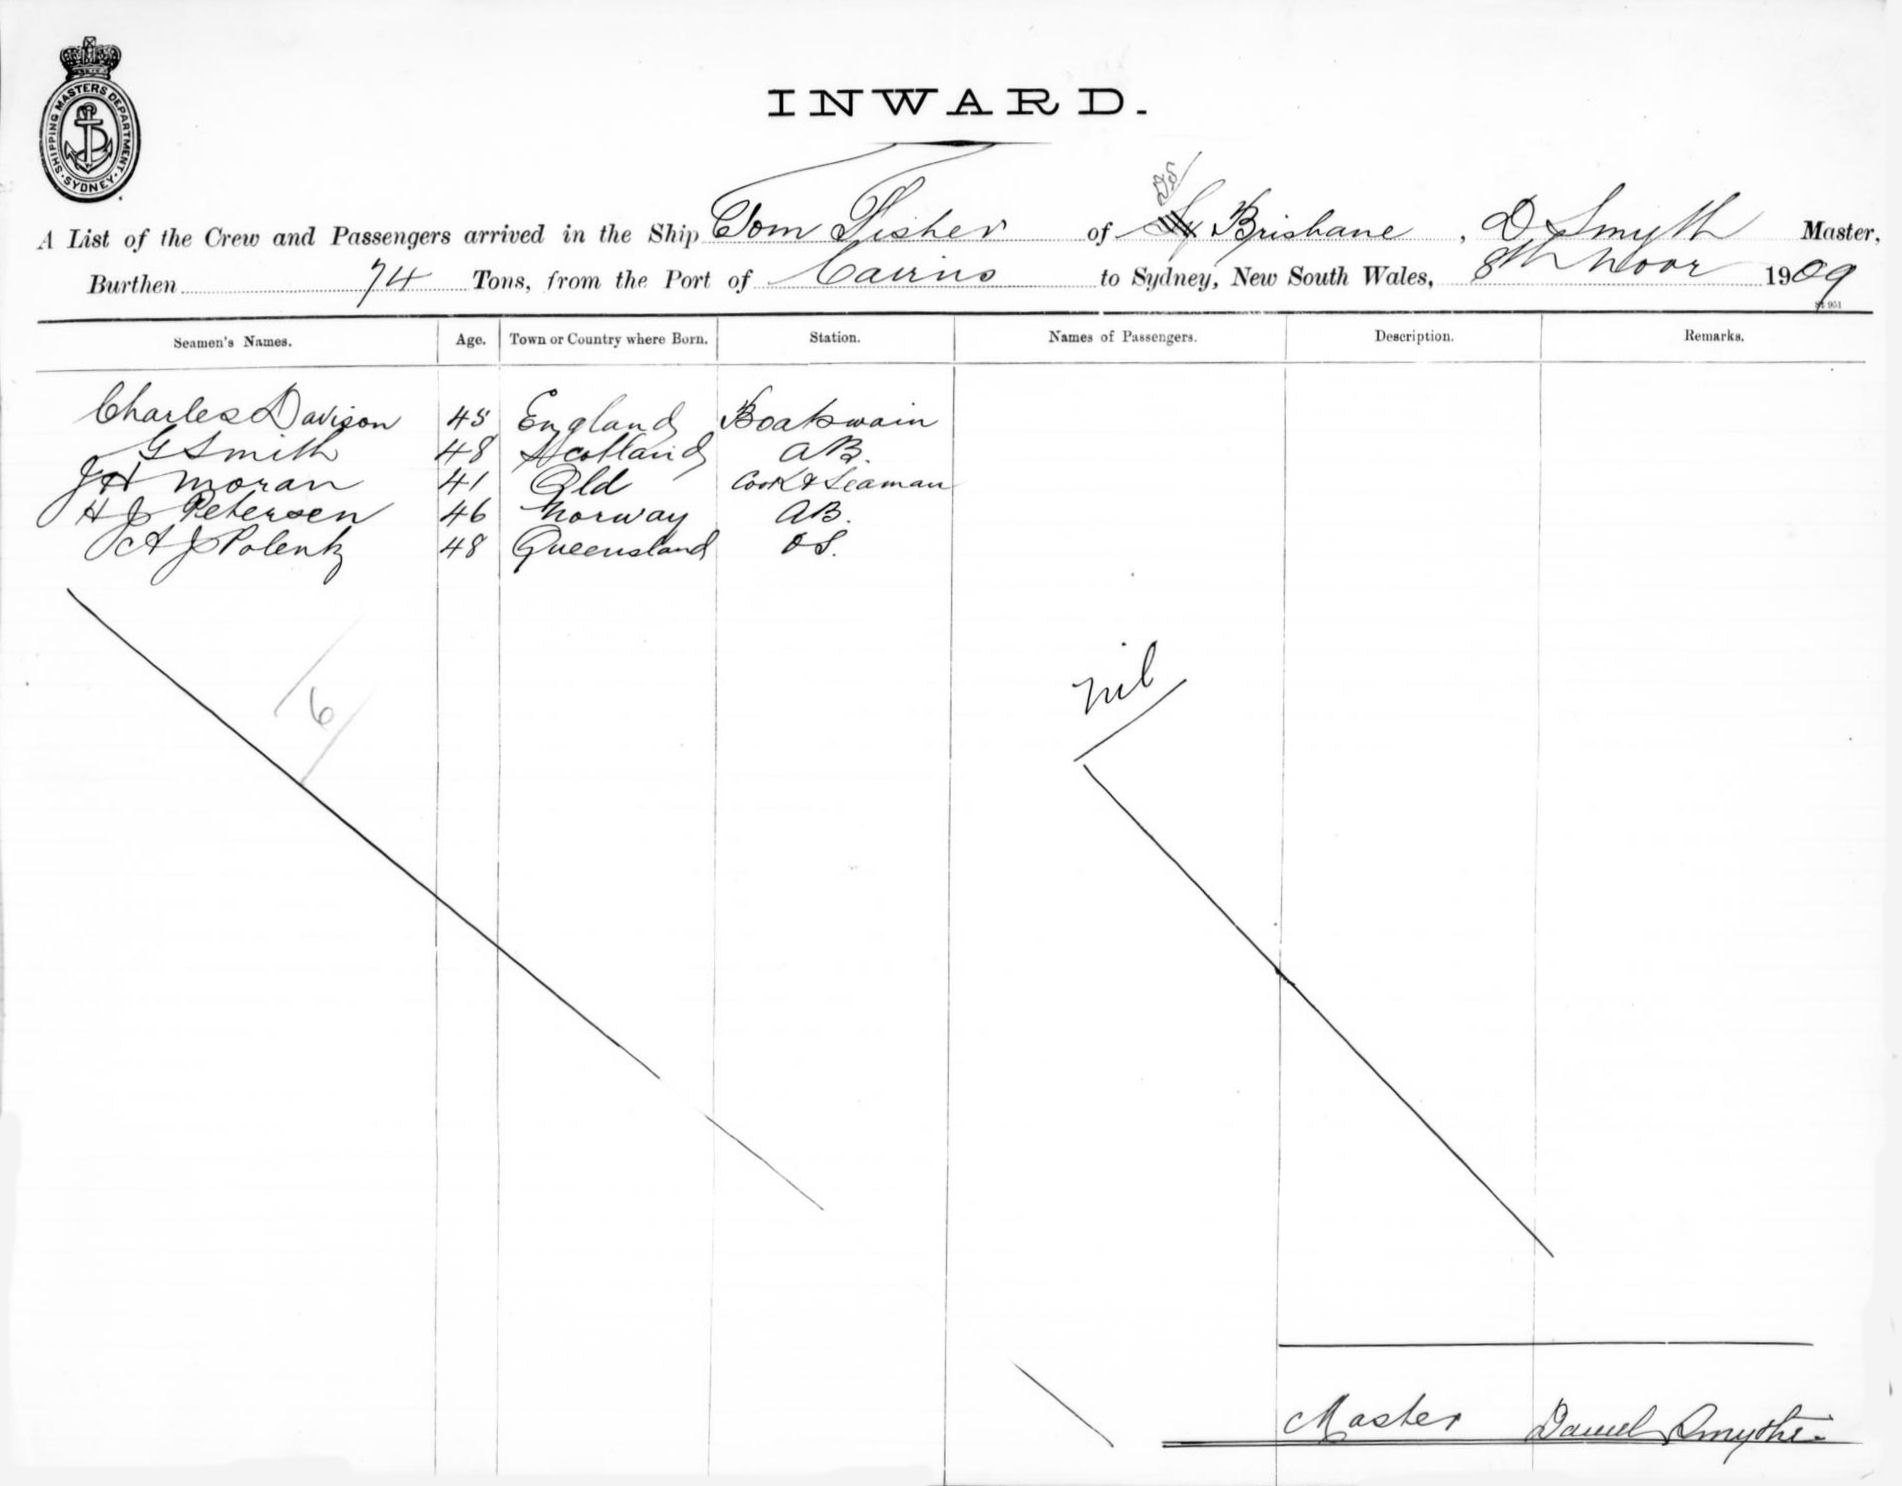 SHIPPING MASTERS DEPARTMENT
SYDNEY
INWARD.
A List of the Crew and Passengers arrived in the Ship Tom Fisher of Brisbane, D Smyth Master,
Burthen 74 Tons, from the Port of Cairns to Sydney, New South Wales, 8th Novr 1909
St 951
Seamen's Names. Age. Town or Country where Born. Station. Names of Passengers. Description. Remarks.
Charles Davison 45 England Boatswain
G Smith 48 Scotland AB.
J H Moran 41 Qld Cook & Seaman
H J Petersen 46 Norway AB.
A J Polentz 48 Queensland OS.
nil
6
Master Daniel Smythe